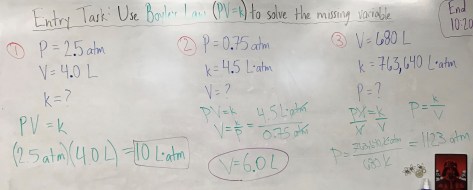 Entry Task: Use Boyle's Law (PV=k) to solve the missing variable
End
10:20
① P = 2.5 atm
V = 4.0 L
k = ?
PV = k
(2.5 atm)(4.0 L) = 10 L·atm
② P = 0.75 atm
k = 4.5 L·atm
V = ?
PV = k
V = k/P = 4.5 L·atm / 0.75 atm
V = 6.0 L
③ V = 680 L
k = 763,640 L·atm
P = ?
PV/V = k/V
P = k/V
= 1123 atm